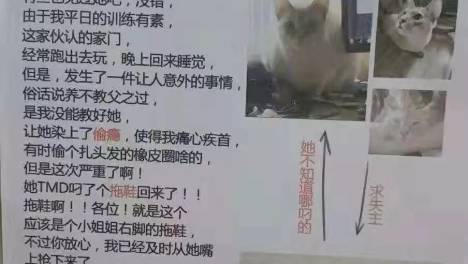 由于我平日的训练有素，
这家伙认的家门，
经常跑出去玩，晚上回来睡觉，
但是，发生了一件让人意外的事情，
俗话说养不教父之过，
是我没能教好她，
让她染上了偷瘾，使得我痛心疾首，
有时偷个扎头发的橡皮圈啥的，
但是这次严重了啊！
她TMD叼了个拖鞋回来了！！
拖鞋啊！！各位！就是这个
应该是个小姐姐右脚的拖鞋，
不过你放心，我已经及时从她嘴
上抢下来了
她不知道哪叼的
求失主